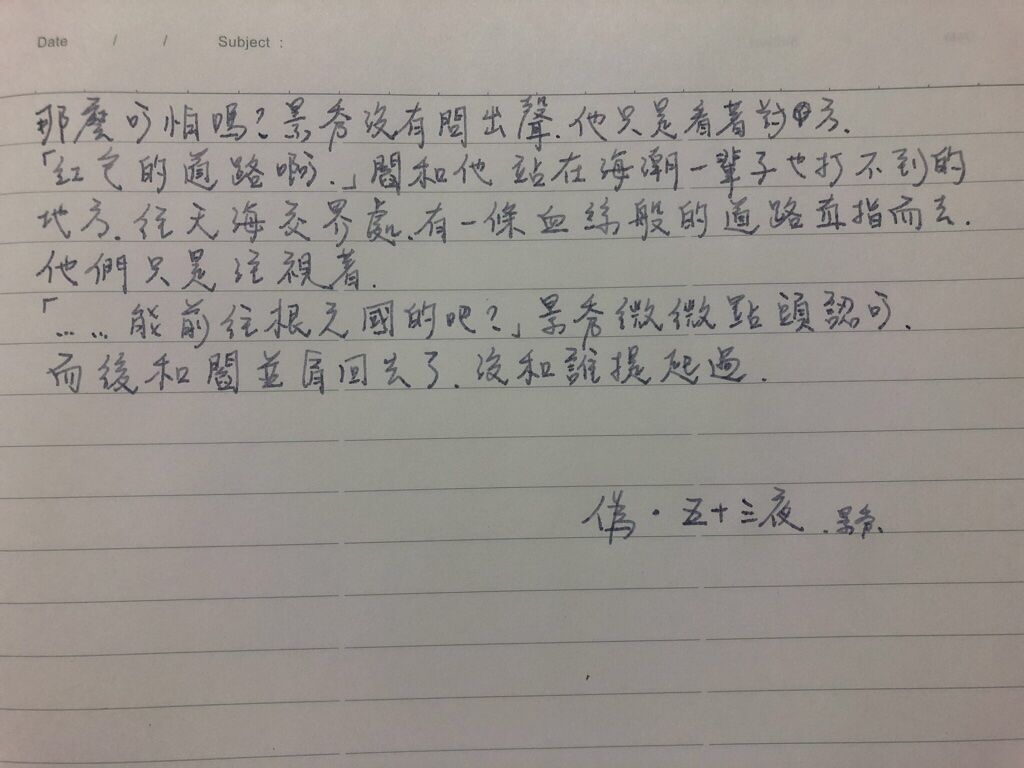 Date / / Subject :
那麼可怕嗎?景秀沒有問出聲.他只是看著對方.
「紅色的道路啊.」閻和他站在海潮一輩子也打不到的
地方.往天海交界處.有一條血絲般的道路直指而去.
他們只是注視着.
「……能前往根之國的吧?」景秀微微點頭認可.
而後和閻並肩回去了.沒和誰提起過.
偽・五十三夜.景秀.